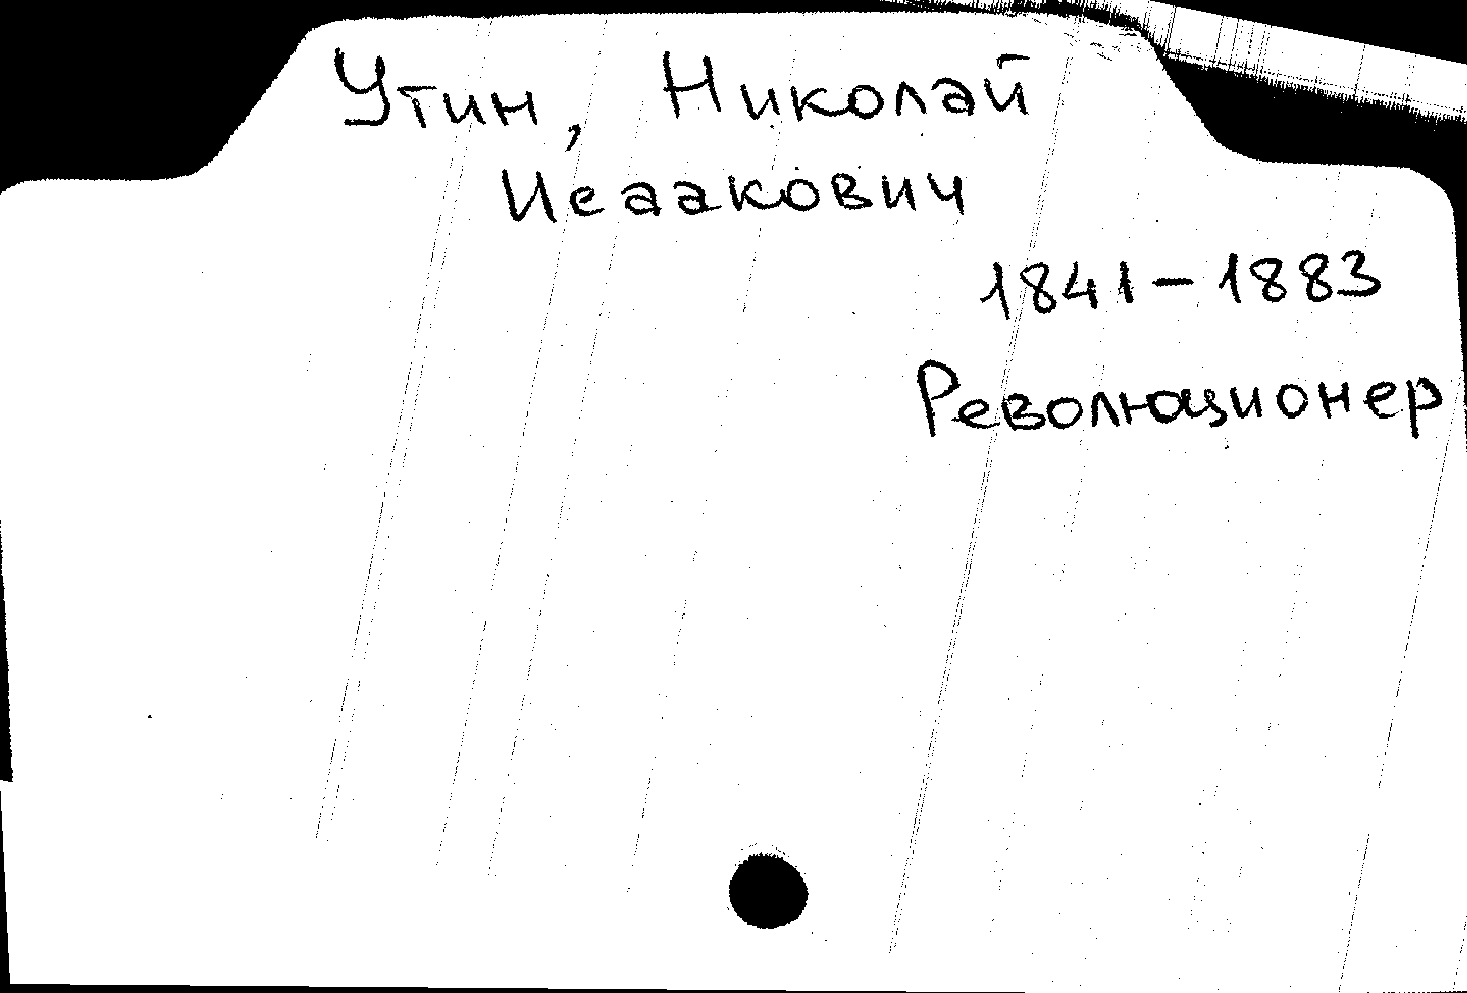 Утин, Николай
Исаакович
1841-1883
Революционер